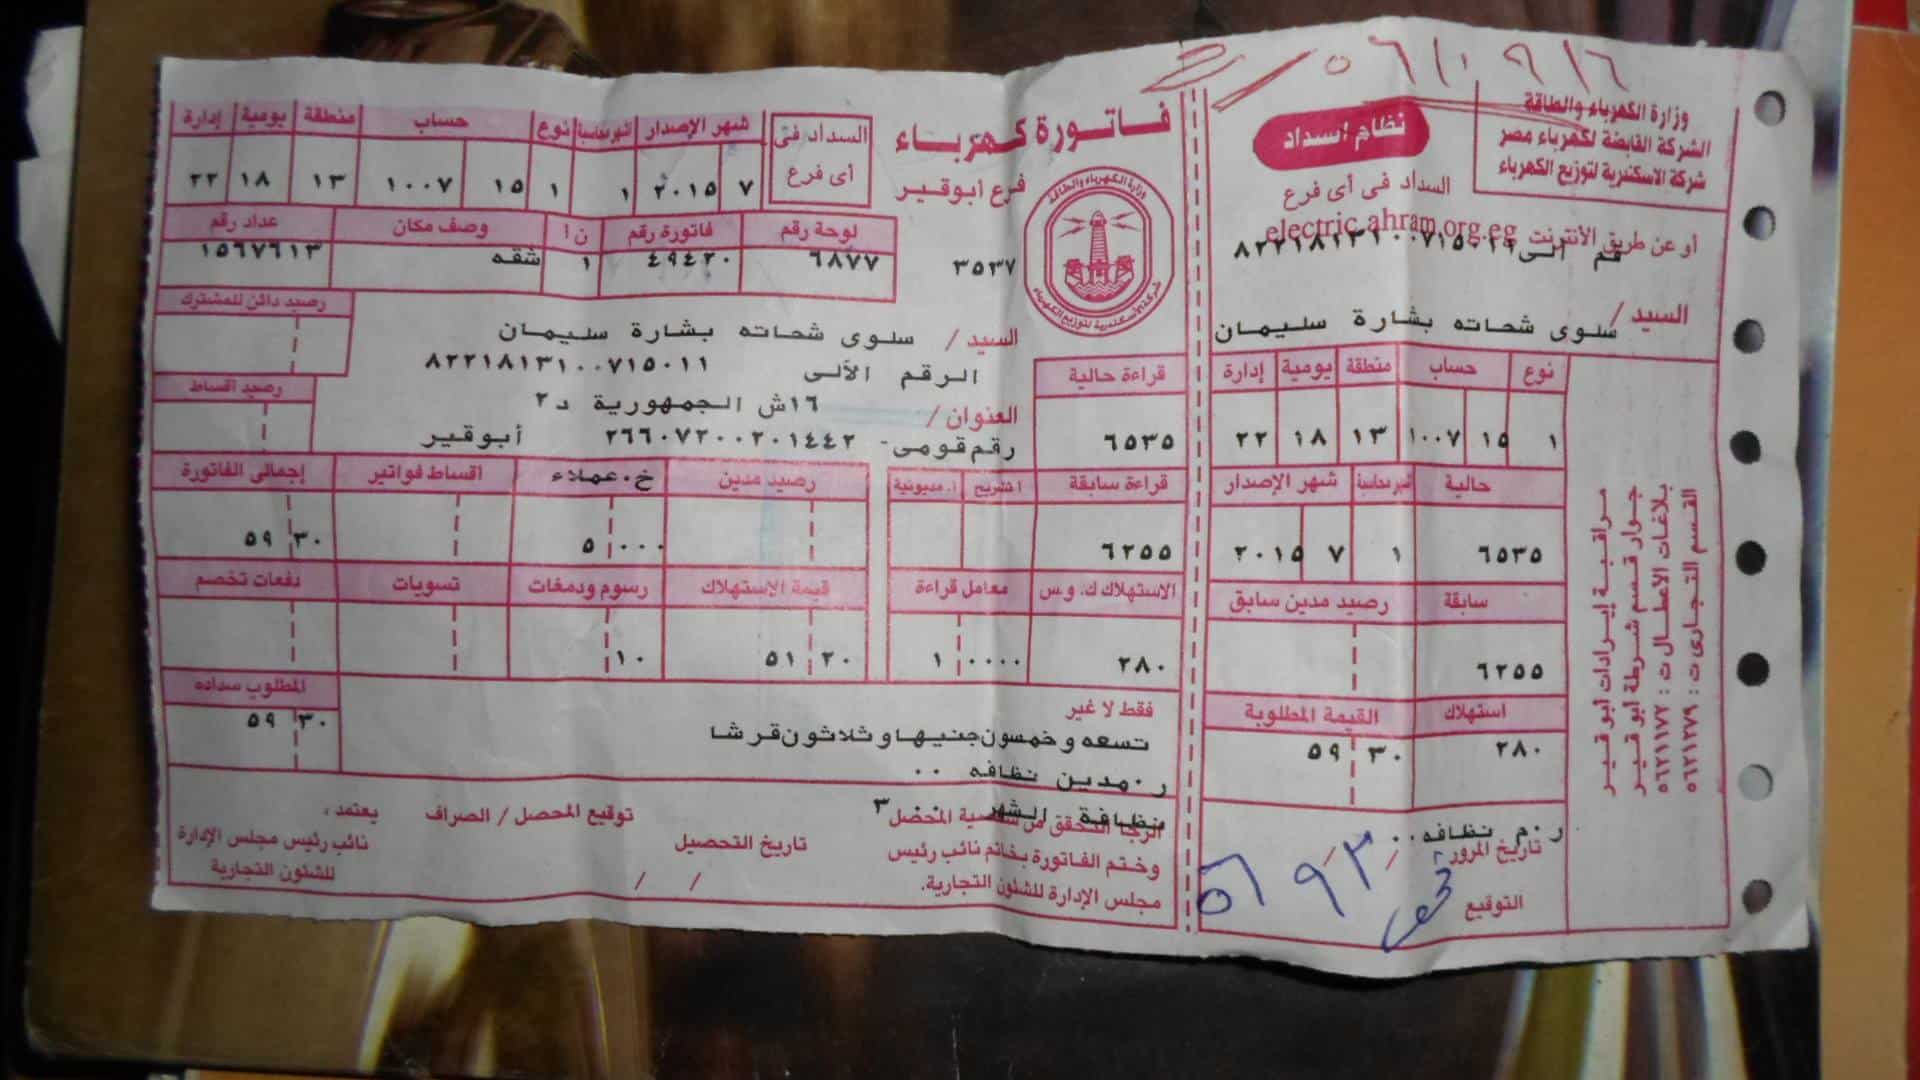 وزارة الكهرباء والطاقة
الشركة القابضة لكهرباء مصر
شركة الاسكندرية لتوزيع الكهرباء
نظام اسداد
السداد فى أى فرع
أو عن طريق الأنترنت electric.ahram.org.eg
رقم آلى ٨٢٢١٨١٣١٠٠٧١٥٠١١
السيد / سلوى شحاته بشارة سليمان
نوع حساب منطقة يومية إدارة
١ ١٥ ١٠٠٧ ١٣ ١٨ ٢٢
حالية شهر محاسبة شهر الإصدار
٦٥٣٥ ١ ٧ ٢٠١٥
سابقة رصيد مدين سابق
٦٢٥٥
استهلاك القيمة المطلوبة
٢٨٠ ٥٩ ٣٠
ر.م نظافه ٠٠
تاريخ المرور / /
التوقيع
مراقبة إيرادات ابو قير
جوار قسم شرطة ابو قير
بلاغات الأعطال ت : ٥٦٢١١٧٢
القسم التجارى ت : ٥٦٢١٢٧٩
فاتورة كهرباء
فرع ابوقير
وزارة الكهرباء والطاقة
شركة الاسكندرية لتوزيع الكهرباء
٣٥٣٧
السداد فى
أى فرع
شهر الإصدار شهر محاسبة نوع حساب منطقة يومية إدارة
٧ ٢٠١٥ ١ ١ ١٥ ١٠٠٧ ١٣ ١٨ ٢٢
لوحة رقم فاتورة رقم ن أ وصف مكان عداد رقم
٦٨٧٧ ٤٩٤٢٠ ١ شقه ١٥٦٧٦١٣
رصيد دائن للمشترك
السيد / سلوى شحاته بشارة سليمان
الرقم الألى ٨٢٢١٨١٣١٠٠٧١٥٠١١
العنوان / ١٦ش الجمهورية د٢
رقم قومى- ٢٦٦٠٧٢٠٠٢٠١٤٤٢ أبوقير
رصيد اقساط
قراءة حالية
٦٥٣٥
قراءة سابقة أ.تشريح أ. مديونية رصيد مدين خ.عملاء اقساط فواتير إجمالى الفاتورة
٦٢٥٥ ٥ ٠٠٠ ٥٩ ٣٠
الاستهلاك ك. و.س معامل قراءة قيمة الاستهلاك رسوم ودمغات تسويات دفعات تخصم
٢٨٠ ١ ٠٠٠٠ ٥١ ٢٠ ١٠
المطلوب سداده
٥٩ ٣٠
فقط لا غير
تسعه وخمسون جنيها وثلاثون قرشا
ر.مدين نظافه ٠٠
نظافة الشهر ٣
الرجا التحقق من شخصية المحصل
وختم الفاتورة بخاتم نائب رئيس
مجلس الإدارة للشئون التجارية.
تاريخ التحصيل
/ /
توقيع المحصل / الصراف
يعتمد ،
نائب رئيس مجلس الإدارة
للشئون التجارية